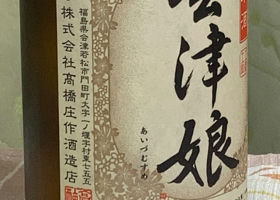 酒
会津娘
あいづむすめ
福島県会津若松市門田町大字一堰字村東七五五
株式会社髙橋庄作酒造店